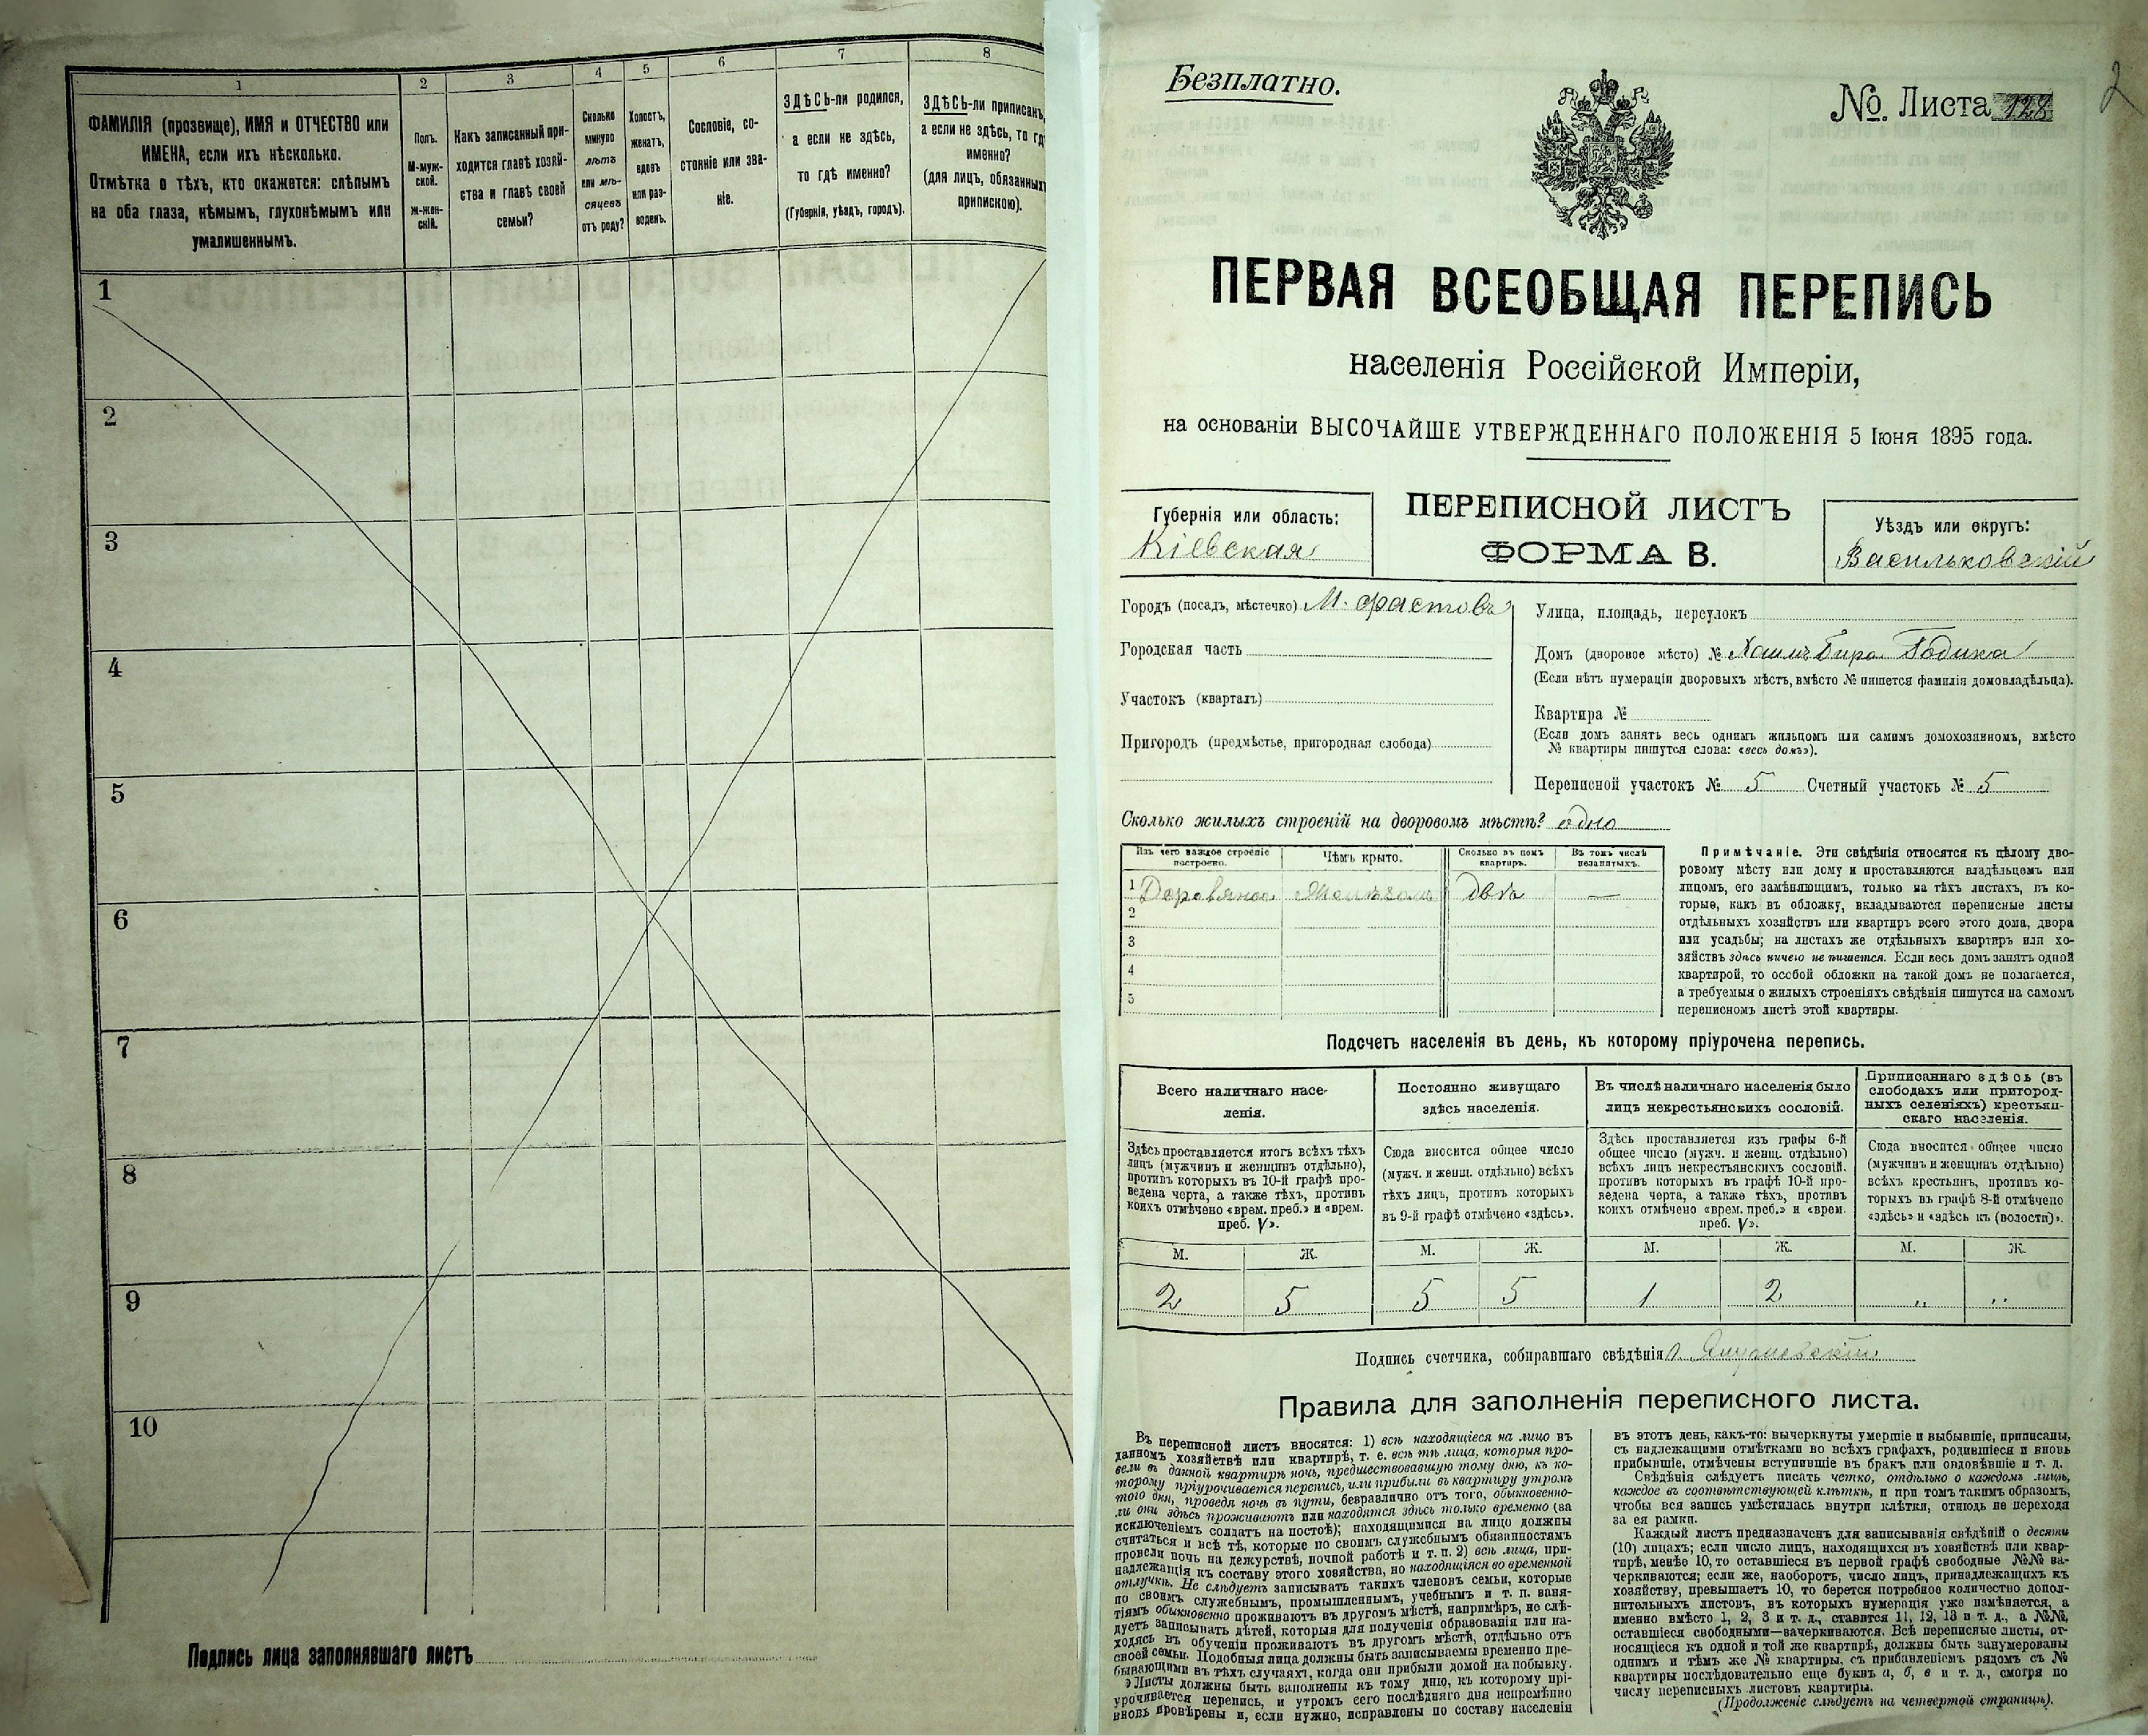 1
2
3
4
5
6
7
8
ФАМИЛІЯ (прозвище), ИМЯ и ОТЧЕСТВО или
ИМЕНА, если ихъ нѣсколько.
Отмѣтка о тѣхъ, кто окажется: слѣпымъ
на оба глаза, нѣмымъ, глухонѣмымъ или
умалишеннымъ.
Полъ.
М-муж-
ской.
Ж-жен-
скій.
Какъ записанный при-
ходится главѣ хозяй-
ства и главѣ своей
семьи?
Сколько
минуло
лѣтъ
или мѣ-
сяцевъ
отъ роду?
Холостъ,
женатъ,
вдовъ
или раз-
веденъ.
Сословіе, со-
стояніе или зва-
ніе.
ЗДѢСЬ-ли родился,
а если не здѣсь,
то гдѣ именно?
(Губернія, уѣздъ, городъ).
ЗДѢСЬ-ли приписанъ,
а если не здѣсь, то гд
именно?
(для лицъ, обязанных
припискою).
1
2
3
4
5
6
7
8
9
10
Подпись лица заполнявшаго листъ
Безплатно.
№. Листа 128
2
ПЕРВАЯ ВСЕОБЩАЯ ПЕРЕПИСЬ
населенія Россійской Имперіи,
на основаніи ВЫСОЧАЙШЕ УТВЕРЖДЕННАГО ПОЛОЖЕНІЯ 5 Іюня 1895 года.
Губернія или область:
Кіевская
ПЕРЕПИСНОЙ ЛИСТЪ
ФОРМА В.
Уѣздъ или округъ:
Васильковскій
Городъ (посадъ, мѣстечко) М. Фастовъ
Городская часть
Участокъ (кварталъ)
Пригородъ (предмѣстье, пригородная слобода)
Улица, площадь, переулокъ
Домъ (дворовое мѣсто) №
(Если нѣтъ нумераціи дворовыхъ мѣстъ, вмѣсто № пишется фамилія домовладѣльца).
Квартира №
(Если домъ занятъ весь однимъ жильцомъ или самимъ домохозяиномъ, вмѣсто
№ квартиры пишутся слова: «весь домъ»).
Переписной участокъ № 5 Счетный участокъ № 5
Сколько жилыхъ строеній на дворовомъ мѣстѣ? одно
Изъ чего каждое строеніе
построено.
Чѣмъ крыто.
Сколько въ немъ
квартиръ.
Въ томъ числѣ
незанятыхъ.
1 Деревяное Желѣзомъ двѣ —
2
3
4
5
Примѣчаніе. Эти свѣдѣнія относятся къ цѣлому дво-
ровому мѣсту или дому и проставляются владѣльцемъ или
лицомъ, его замѣняющимъ, только на тѣхъ листахъ, въ ко-
торые, какъ въ обложку, вкладываются переписные листы
отдѣльныхъ хозяйствъ или квартиръ всего этого дома, двора
или усадьбы; на листахъ же отдѣльныхъ квартиръ или хо-
зяйствъ здѣсь ничего не пишется. Если весь домъ занятъ одной
квартирой, то особой обложки на такой домъ не полагается,
а требуемыя о жилыхъ строеніяхъ свѣдѣнія пишутся на самомъ
переписномъ листѣ этой квартиры.
Подсчетъ населенія въ день, къ которому пріурочена перепись.
Всего наличнаго насе-
ленія.
Постоянно живущаго
здѣсь населенія.
Въ числѣ наличнаго населенія было
лицъ некрестьянскихъ сословій.
Приписаннаго здѣсь (въ
слободахъ или пригород-
ныхъ селеніяхъ) крестьян-
скаго населенія.
Здѣсь проставляется итогъ всѣхъ тѣхъ
лицъ (мужчинъ и женщинъ отдѣльно),
противъ которыхъ въ 10-й графѣ про-
ведена черта, а также тѣхъ, противъ
коихъ отмѣчено «врем. преб.» и «врем.
преб. V».
Сюда вносится общее число
(мужч. и женщ. отдѣльно) всѣхъ
тѣхъ лицъ, противъ которыхъ
въ 9-й графѣ отмѣчено «здѣсь».
Здѣсь проставляется изъ графы 6-й
общее число (мужч. и женщ. отдѣльно)
всѣхъ лицъ некрестьянскихъ сословій,
противъ которыхъ въ графѣ 10-й про-
ведена черта, а также тѣхъ, противъ
коихъ отмѣчено «врем. преб.» и «врем.
преб. V».
Сюда вносится общее число
(мужчинъ и женщинъ отдѣльно)
всѣхъ крестьянъ, противъ ко-
торыхъ въ графѣ 8-й отмѣчено
«здѣсь» и «здѣсь къ (волости)».
М. Ж. М. Ж. М. Ж. М. Ж.
2 5 5 5 1 2 „ „
Подпись счетчика, собиравшаго свѣдѣнія
Правила для заполненія переписного листа.
Въ переписной листъ вносятся: 1) всѣ находящіеся на лицо въ
данномъ хозяйствѣ или квартирѣ, т. е. всѣ тѣ лица, которыя про-
вели въ данной квартирѣ ночь, предшествовавшую тому дню, къ ко-
торому пріурочивается перепись, или прибыли въ квартиру утромъ
того дня, проведя ночь въ пути, безразлично отъ того, обыкновенно-
ли они здѣсь проживаютъ или находятся здѣсь только временно (за
исключеніемъ солдатъ на постоѣ); находящимися на лицо должны
считаться и всѣ тѣ, которые по своимъ служебнымъ обязанностямъ
провели ночь на дежурствѣ, ночной работѣ и т. п. 2) всѣ лица, при-
надлежащія къ составу этого хозяйства, но находящіяся во временной
отлучкѣ. Не слѣдуетъ записывать такихъ членовъ семьи, которые
по своимъ служебнымъ, промышленнымъ, учебнымъ и т. п. заня-
тіямъ обыкновенно проживаютъ въ другомъ мѣстѣ, напримѣръ, не слѣ-
дуетъ записывать дѣтей, которыя для полученія образованія или на-
ходясь въ обученіи проживаютъ въ другомъ мѣстѣ, отдѣльно отъ
своей семьи. Подобныя лица должны быть записываемы временно пре-
бывающими въ тѣхъ случаяхъ, когда они прибыли домой на побывку.
Листы должны быть заполнены къ тому дню, къ которому прі-
урочивается перепись, и утромъ сего послѣдняго дня непремѣнно
вновь провѣрены и, если нужно, исправлены по составу населенія
въ этотъ день, какъ-то: вычеркнуты умершіе и выбывшіе, приписаны,
съ надлежащими отмѣтками во всѣхъ графахъ, родившіеся и вновь
прибывшіе, отмѣчены вступившіе въ бракъ или овдовѣвшіе и т. д.
Свѣдѣнія слѣдуетъ писать четко, отдѣльно о каждомъ лицѣ,
каждое въ соотвѣтствующей клѣткѣ, и при томъ такимъ образомъ,
чтобы вся запись умѣстилась внутри клѣтки, отнюдь не переходя
за ея рамки.
Каждый листъ предназначенъ для записыванія свѣдѣній о десяти
(10) лицахъ; если число лицъ, находящихся въ хозяйствѣ или квар-
тирѣ, менѣе 10, то оставшіеся въ первой графѣ свободные №№ за-
черкиваются; если же, наоборотъ, число лицъ, принадлежащихъ къ
хозяйству, превышаетъ 10, то берется потребное количество допол-
нительныхъ листовъ, въ которыхъ нумерація уже измѣняется, а
именно вмѣсто 1, 2, 3 и т. д., ставится 11, 12, 13 и т. д., а №№,
оставшіеся свободными—зачеркиваются. Всѣ переписные листы, от-
носящіеся къ одной и той же квартирѣ, должны быть занумерованы
однимъ и тѣмъ же № квартиры, съ прибавленіемъ рядомъ съ №
квартиры послѣдовательно еще буквъ а, б, в и т. д., смотря по
числу переписныхъ листовъ квартиры.
(Продолженіе слѣдуетъ на четвертой страницѣ).